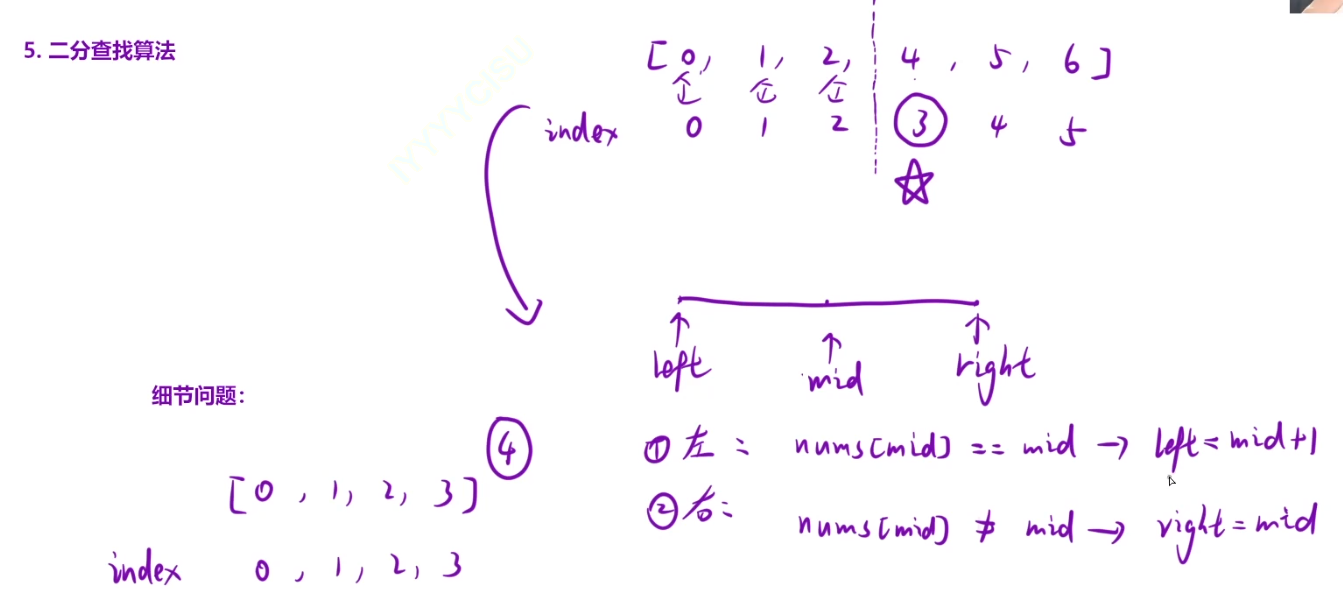 5. 二分查找算法
[ 0, 1, 2, 4, 5, 6 ]
index 0 1 2 3 4 5
left mid right
细节问题：
① 左： nums[mid] == mid → left = mid+1
② 右： nums[mid] ≠ mid → right = mid
[ 0, 1, 2, 3 ] 4
index 0, 1, 2, 3